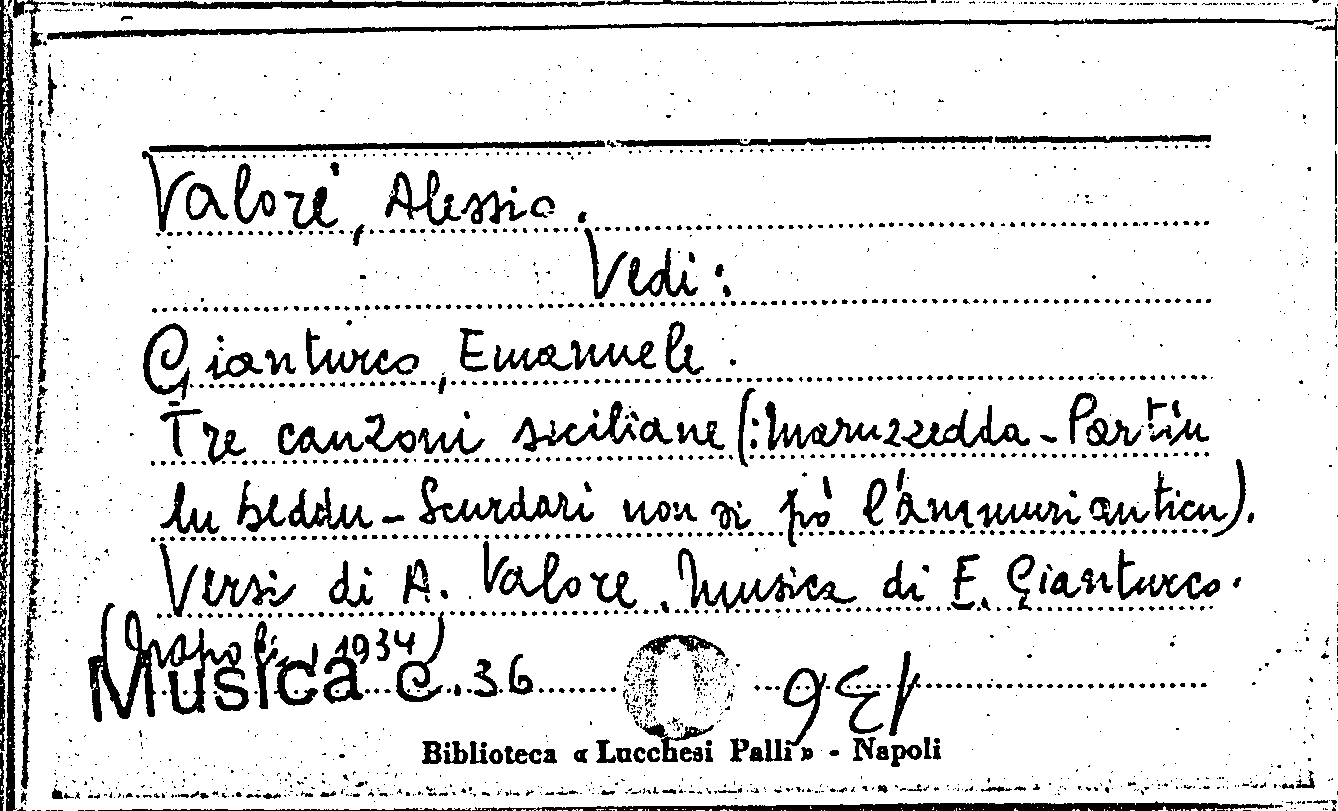 Valore, Alessio.
Vedi:
Gianturco, Emanuele.
Tre canzoni siciliane (: Maruzzedda - Partiu
lu beddu - Scurdari non si pò l'ammuri anticu).
Versi di A. Valore. Musica di E. Gianturco.
(Napoli, 1934)
Musica c. 36
Biblioteca « Lucchesi Palli » - Napoli